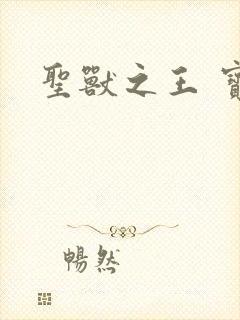 聖獸之王 寶
暢然